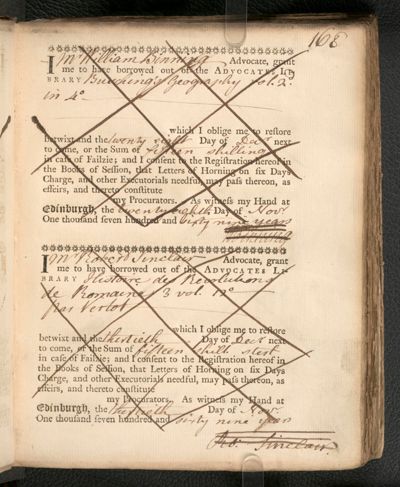 168
I Mr William Binning Advocate, grant
me to have borrowed out of the ADVOCATES LI-
BRARY Busching's Geography Vol. 2d.
in 4o
which I oblige me to reſtore
betwixt and the twenty eight Day of Decr next
to come, or the Sum of fifteen shillings
in caſe of Failzie; and I conſent to the Regiſtration hereof in
the Books of Seſſion, that Letters of Horning on ſix Days
Charge, and other Executorials needful, may paſs thereon, as
effeirs, and thereto conſtitute
my Procurators. As witneſs my Hand at
Edinburgh, the twentyeighth Day of Novr
One thouſand ſeven hundred and sixty nine years
I Mr Robert Sinclair Advocate, grant
me to have borrowed out of the ADVOCATES LI-
BRARY Histoire des Revolutions
de Romaine 3 vol. 12o
par Vertot
which I oblige me to reſtore
betwixt and the thirtieth Day of Decr next
to come, or the Sum of fifteen shill. sterl.
in caſe of Failzie; and I conſent to the Regiſtration hereof in
the Books of Seſſion, that Letters of Horning on ſix Days
Charge, and other Executorials needful, may paſs thereon, as
effeirs, and thereto conſtitute
my Procurators. As witneſs my Hand at
Edinburgh, the thirtieth Day of Novr
One thouſand ſeven hundred and sixty nine years
Ro. Sinclair